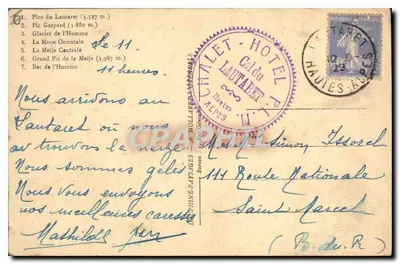 1. Pics du Lautaret (3.537 m.)
2. Pic Gaspard (3 880 m.)
3. Glacier de l'Homme
4. La Meije Orientale
5. La Meije Centrale
6. Grand Pic de la Meije (3.987 m.)
7. Bec de l'Homme
Le 11.
11 heures.
Nous arrivons au
Lautaret où nous
trouvons la neige
Nous sommes gelés
Nous Vous envoyons
nos meilleures caresses
Mathilde
CHALET - HOTEL P.L.M.
Col du
LAUTARET
Hautes
Alpes
LAUTARET
HAUTES-ALPES
Simon Issorel
111 Route Nationale
Saint Marcel
(B. du R)